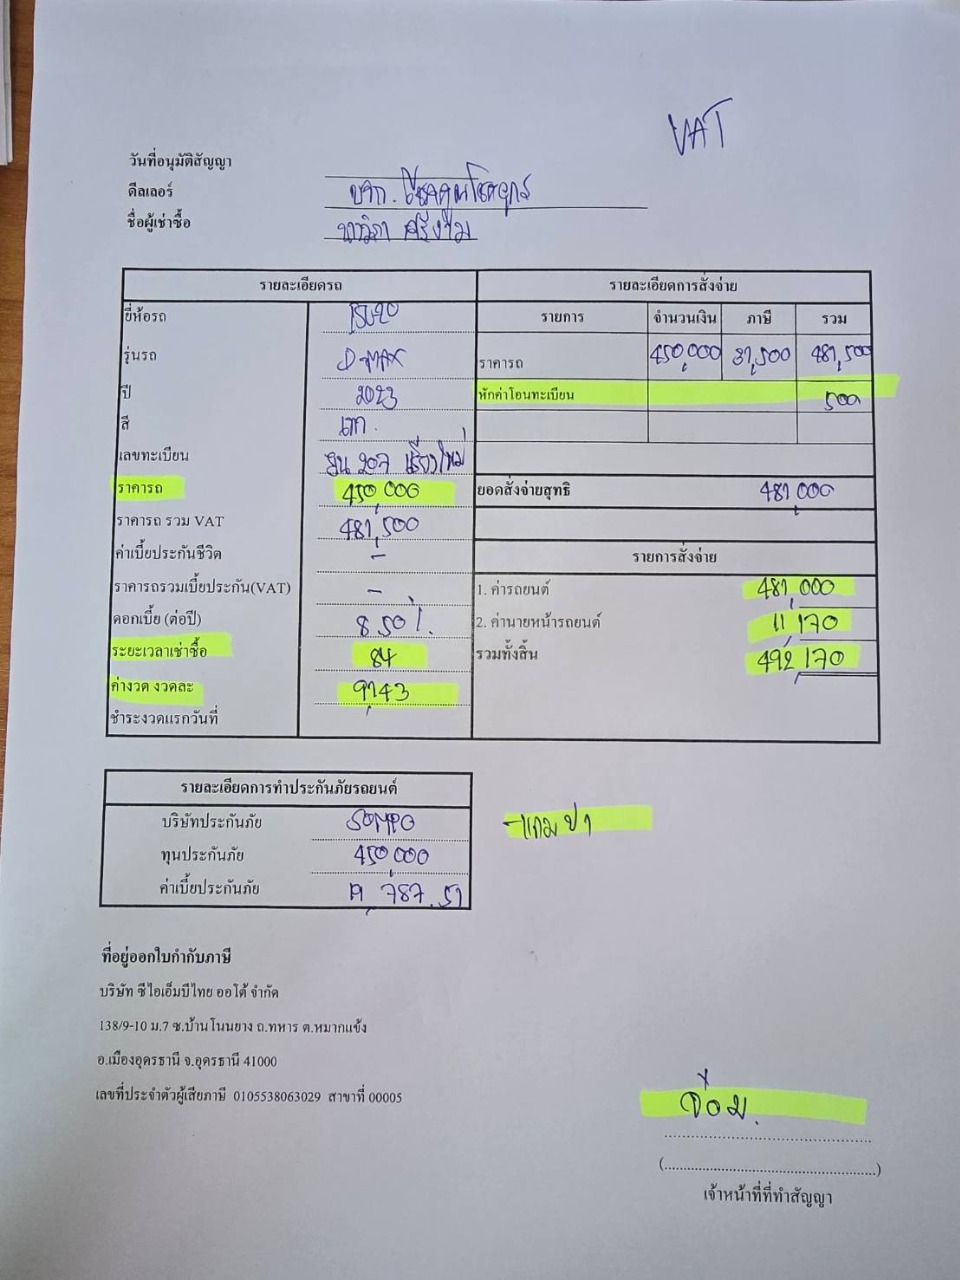 VAT
วันที่อนุมัติสัญญา
ดีลเลอร์ บจก.
ชื่อผู้เช่าซื้อ
รายละเอียดรถ
ยี่ห้อรถ ISUZU
รุ่นรถ D-MAX
ปี 2023
สี เทา.
เลขทะเบียน ขน 207 เชียงใหม่
ราคารถ 450,000
ราคารถ รวม VAT 481,500
ค่าเบี้ยประกันชีวิต -
ราคารถรวมเบี้ยประกัน(VAT) -
ดอกเบี้ย (ต่อปี) 8.50%.
ระยะเวลาเช่าซื้อ 84
ค่างวด งวดละ 9,143
ชำระงวดแรกวันที่
รายละเอียดการสั่งจ่าย
รายการ จำนวนเงิน ภาษี รวม
ราคารถ 450,000 31,500 481,500
หักค่าโอนทะเบียน 500
ยอดสั่งจ่ายสุทธิ 481,000
รายการสั่งจ่าย
1. ค่ารถยนต์ 481,000
2. ค่านายหน้ารถยนต์ 11,170
รวมทั้งสิ้น 492,170
รายละเอียดการทำประกันภัยรถยนต์
บริษัทประกันภัย SOMPO
ทุนประกันภัย 450,000
ค่าเบี้ยประกันภัย 19,787.51
- แถม ป1
ที่อยู่ออกใบกำกับภาษี
บริษัท ซีไอเอ็มบีไทย ออโต้ จำกัด
138/9-10 ม.7 ซ.บ้านโนนยาง ถ.ทหาร ต.หมากแข้ง
อ.เมืองอุดรธานี จ.อุดรธานี 41000
เลขที่ประจำตัวผู้เสียภาษี 0105538063029 สาขาที่ 00005
(............................................................)
เจ้าหน้าที่ที่ทำสัญญา